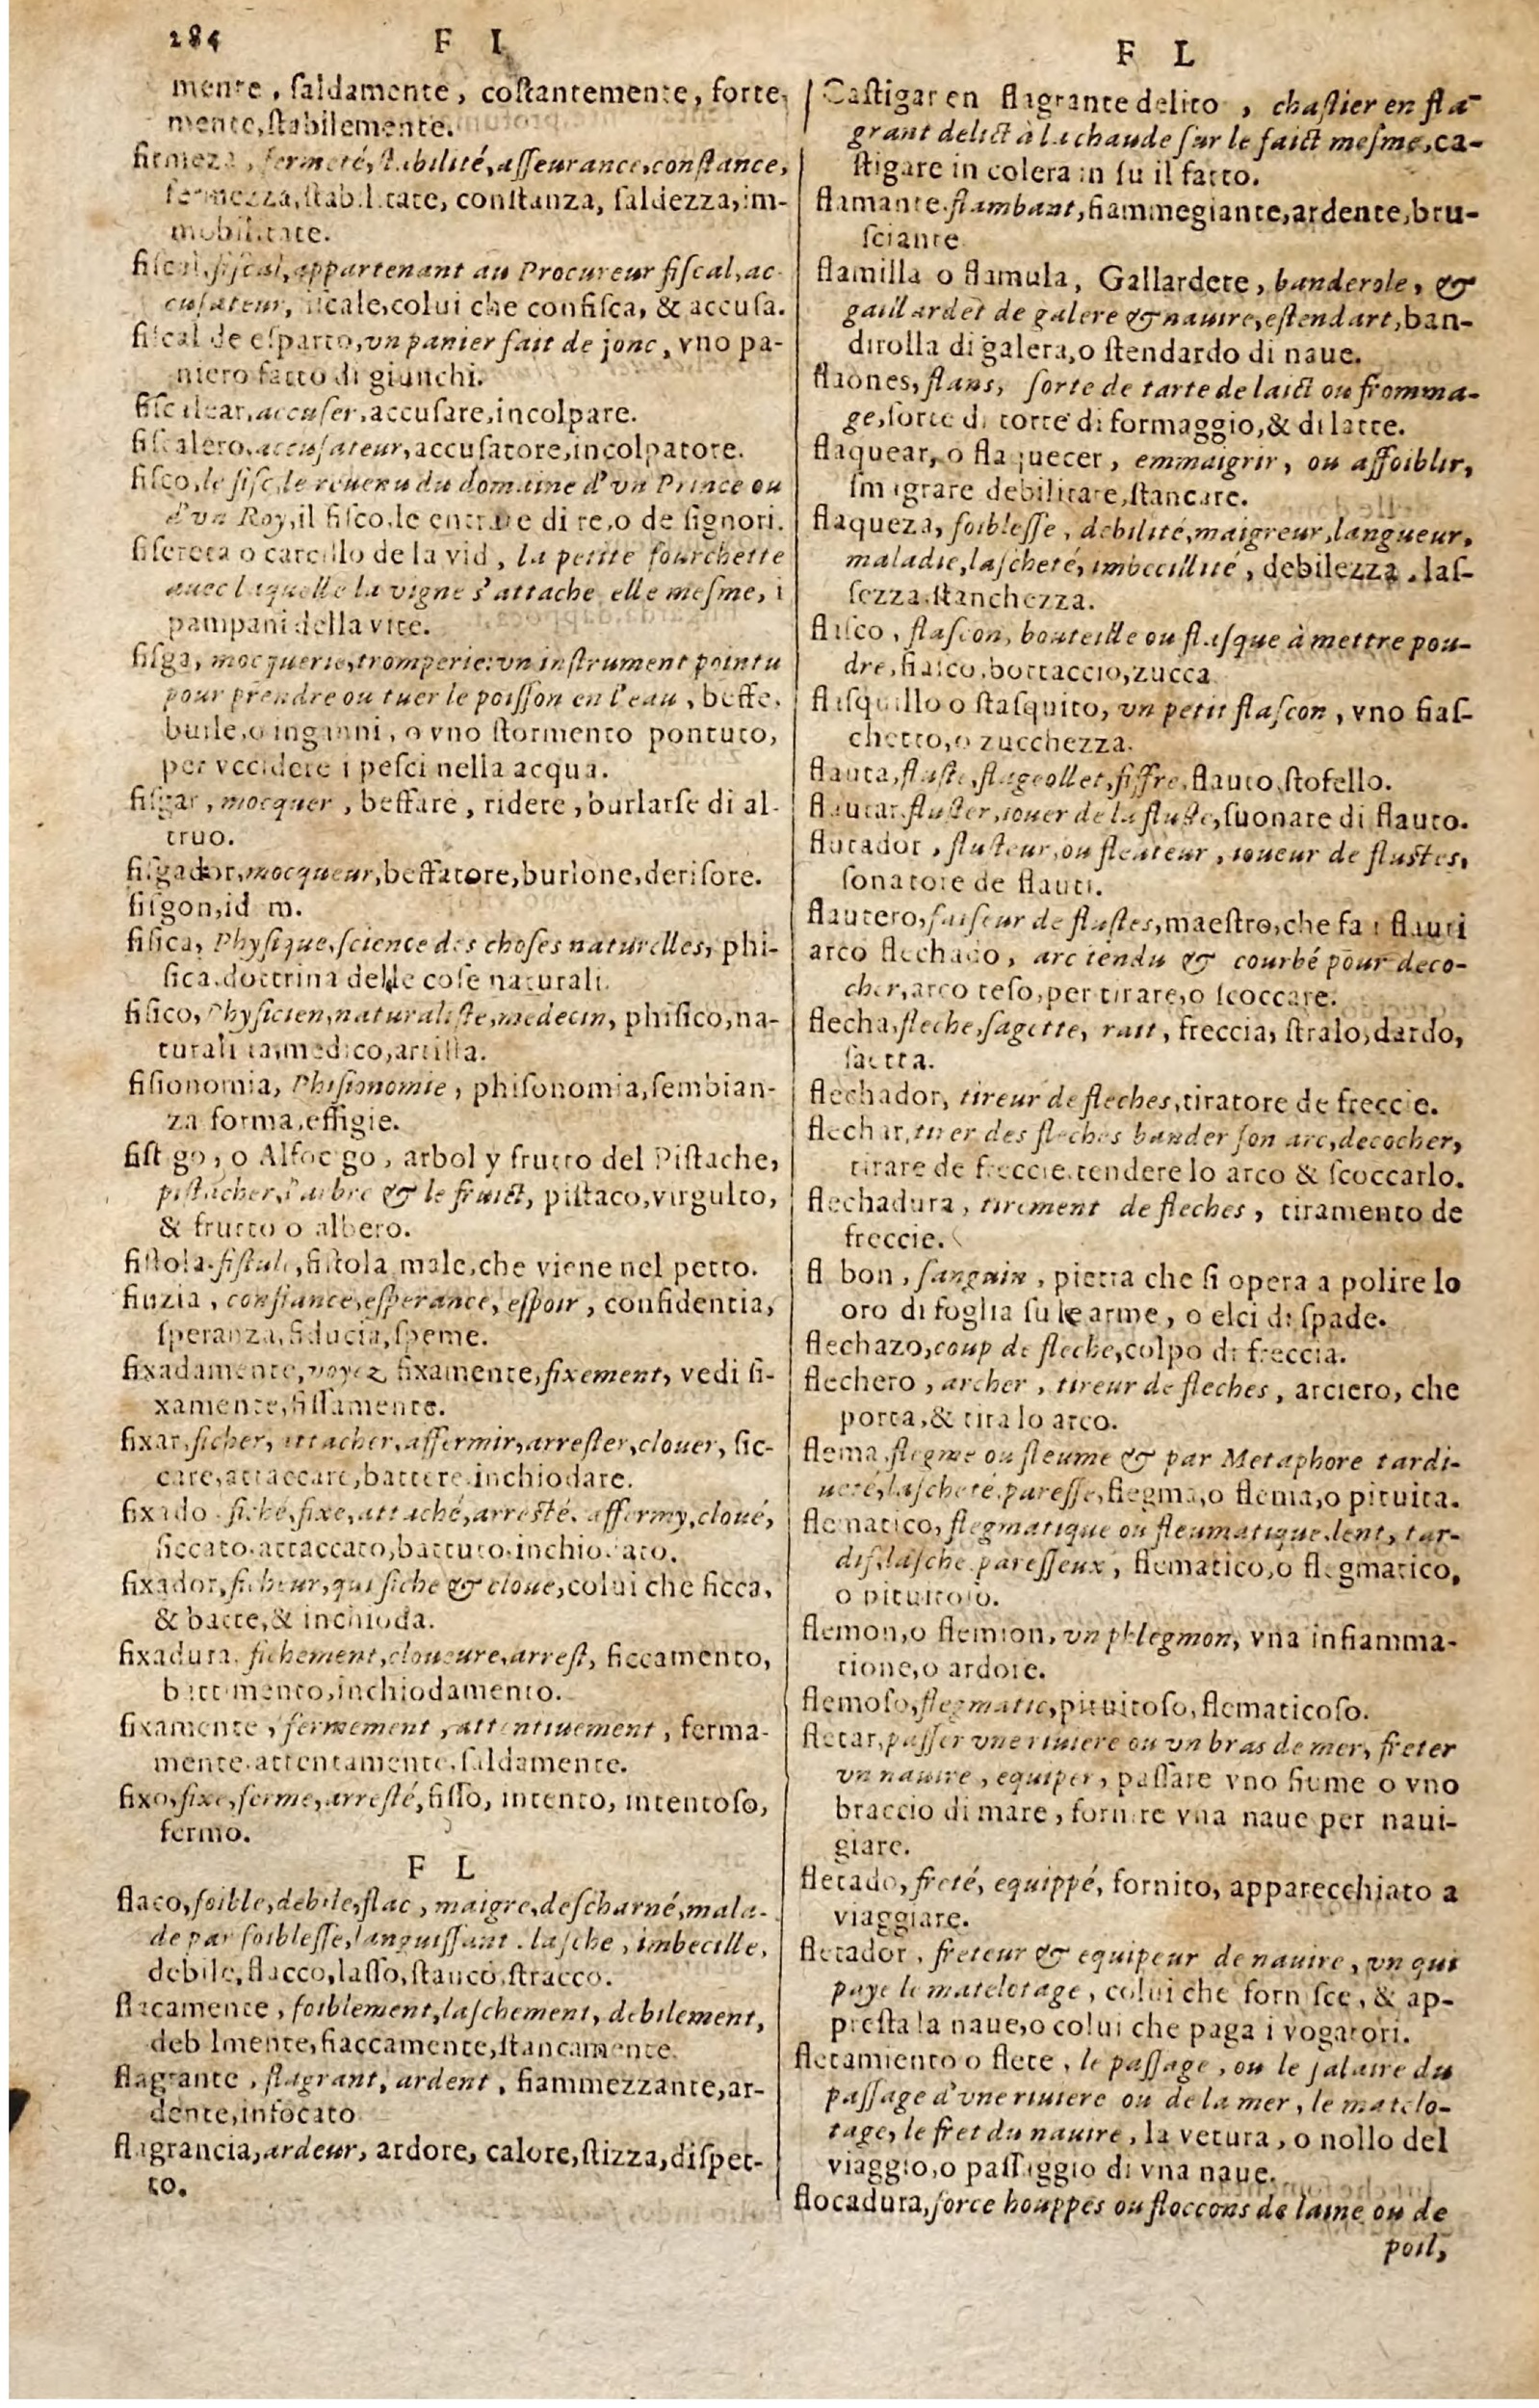 284 F I
mente, ſaldamente, coſtantemente, forte,
mente,ſtabilemente.
firmeza, fermeté,ſtabilité,aſſeurance,conſtance,
fermezza,ſtabilitate, conſtanza, ſaldezza,im-
mobilitate.
fiſcal,fiſcal,appartenant au Procureur fiſcal,ac-
cuſateur, fiſcale,colui che confiſca, & accuſa.
fiſcal de eſparto,vn panier fait de jonc, vno pa-
niero fatto di giunchi.
fiſcalear,accuſer,accuſare,incolpare.
fiſcalero,accuſateur,accuſatore,incolpatore.
fiſco,le fiſc,le reuenu du domaine d'vn Prince ou
d'vn Roy,il fiſco,le entrate di re,o de ſignori.
fiſereta o carcillo de la vid, la petite fourchette
auec laquelle la vigne s'attache elle meſme, i
pampani della vite.
fiſga, mocquerie,tromperie:vn inſtrument pointu
pour prendre ou tuer le poiſſon en l'eau, beffe,
burle,o inganni, o vno ſtormento pontuto,
per vccidere i peſci nella acqua.
fiſgar, mocquer, beffare, ridere, burlarſe di al-
truo.
fiſgador,mocqueur,beffatore,burlone,deriſore.
fiſgon,id m.
fiſica, Phyſique,ſcience des choſes naturelles, phi-
ſica,dottrina delle coſe naturali.
fiſico, Phyſicien,naturaliſte,medecin, phiſico,na-
turaliſta,medico,artiſta.
fiſionomia, Phiſionomie, phiſonomia,ſembian-
za forma,effigie.
fiſtigo, o Alfocigo, arbol y frutto del Piſtache,
piſtacher,l'arbre & le fruict, piſtaco,virgulto,
& frutto o albero.
fiſtola.fiſtule,fiſtola male,che viene nel petto.
fiuzia, confiance,eſperance, eſpoir, confidentia,
ſperanza,fiducia,ſpeme.
fixadamente,voyez fixamente,fixement, vedi fi-
xamente,fiſſamente.
fixar,ficher, attacher,affermir,arreſter,clouer, fic-
care,attaccare,battere,inchiodare.
fixado.fiché,fixe,attaché,arreſté.affermy,cloué,
ficcato,attaccato,battuto,inchiodato.
fixador,ficheur,qui fiche & cloue,colui che ficca,
& batte,& inchioda.
fixadura.fichement,cloueure,arreſt, ficcamento,
battimento,inchiodamento.
fixamente, fermement, attentiuement, ferma-
mente,attentamente,ſaldamente.
fixo,fixe,ferme,arreſté,fiſſo, intento, intentoſo,
fermo.
F L
flaco,foible,debile,flac, maigre,deſcharné,mala-
de par foibleſſe,languiſſant.laſche, imbecille,
debile,flacco,laſſo,ſtanco,ſtracco.
flacamente, foiblement,laſchement, debilement,
deb lmente,fiaccamente,ſtancamente.
flagrante, flagrant, ardent, fiammezzante,ar-
dente,infocato
flagrancia,ardeur, ardore, calore,ſtizza,diſpet-
to.
F L
Caſtigar en flagrante delito, chaſtier en fla-
grant delict à la chaude ſur le faict meſme,ca-
ſtigare in colera in ſu il fatto.
flamante.flambant,fiammegiante,ardente,bru-
ſciante
flamilla o flamula, Gallardete, banderole, &
gaillardet de galere & nauire,eſtendart,ban-
dirolla di galera,o ſtendardo di naue.
flaones,flans, ſorte de tarte de laict ou fromma-
ge,ſorte di torte di formaggio,& di latte.
flaquear, o flaquecer, emmaigrir, ou affoiblir,
ſmagrare debilitare,ſtancare.
flaqueza, foibleſſe, debilité,maigreur,langueur,
maladie,laſcheté, imbecillité, debilezza, laſ-
ſezza,ſtanchezza.
flaſco, flaſcon, bouteille ou flaſque à mettre pou-
dre,fiaſco,bottaccio,zucca
flaſquillo o flaſquito, vn petit flaſcon, vno fiaſ-
chetto,o zucchezza.
flauta,fluſte,flageollet,fiffre,flauto,ſtofello.
flautar.fluſter,iouer de la fluſte,ſuonare di flauto.
flutador, fluſteur,ou fleuteur, ioueur de fluſtes,
ſonatore de flauti.
flautero,faiſeur de fluſtes,maeſtro,che fa i flauti
arco flechado, arc tendu & courbé pour deco-
cher,arco teſo,per tirare,o ſcoccare.
flecha,fleche,ſagette, rait, freccia, ſtralo,dardo,
ſaetta.
flechador, tireur de fleches,tiratore de freccie.
flechar,tirer des fleches bander ſon arc,decocher,
tirare de freccie,tendere lo arco & ſcoccarlo.
flechadura, tirement de fleches, tiramento de
freccie.
fl bon, ſanguin, pietra che ſi opera a polire lo
oro di foglia ſu le arme, o elci di ſpade.
flechazo,coup de fleche,colpo di freccia.
flechero, archer, tireur de fleches, arciero, che
porta,& tira lo arco.
flema,flegme ou fleume & par Metaphore tardi-
ueté,laſcheté,pareſſe,flegma,o flema,o pituita.
flematico,flegmatique ou fleumatique.lent, tar-
dif,laſche pareſſeux, flematico,o flegmatico,
o pituitoſo.
flemon,o flemion, vn phlegmon, vna infiamma-
tione,o ardore.
flemoſo,flegmatic,pituitoſo,flematicoſo.
fletar,paſſer vne riuiere ou vn bras de mer, freter
vn nauire, equiper, paſſare vno fiume o vno
braccio di mare, fornire vna naue per naui-
giare.
fletado, freté, equippé, fornito, apparecchiato a
viaggiare.
fletador, freteur & equipeur de nauire, vn qui
paye le matelotage, colui che forniſce, & ap-
preſta la naue,o colui che paga i vogatori.
fletamiento o flete, le paſſage, ou le ſalaire du
paſſage d'vne riuiere ou de la mer, le matelo-
tage, le fret du nauire, la vetura, o nollo del
viaggio,o paſſaggio di vna naue.
flocadura,force houppes ou floccons de laine ou de
poil,